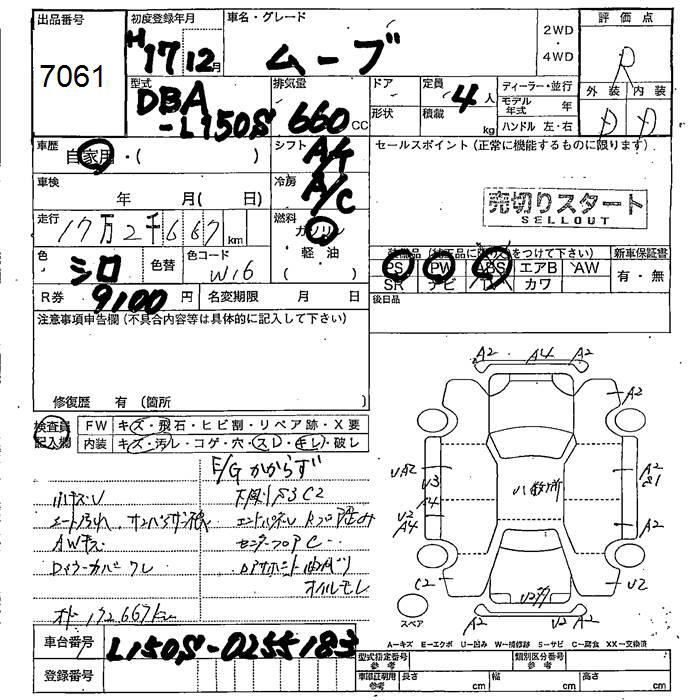 出品番号
7061
初度登録年月
H17 12月
車名・グレード
ムーブ
2WD
・
4WD
評価点
R
外装 内装
D D
型式
DBA
-L150S
排気量
660cc
ドア
形状
定員
4人
積載
kg
ディーラー・並行
モデル年式 年
ハンドル 左・右
車歴
自家用・( )
シフト
A/T
セールスポイント (正常に機能するものに限ります)
車検
年 月( 日)
冷房
A/C
売切りスタート
SELLOUT
走行
17万2千667km
燃料
ガソリン
軽・油
( )
色
シロ
色替
色コード
W16
装備品 (純正品に限り○をつけて下さい)
PS PW ABS エアB AW
SR ナビ カワ
新車保証書
有・無
R券
9100円
名変期限 月 日
後日品
注意事項申告欄 (不具合内容等は具体的に記入して下さい)
修復歴 有 (箇所 )
検査員
記入欄
FW キズ・飛石・ヒビ割・リペア跡・X要
内装 キズ・汚レ・コゲ・穴・スレ・キレ・破レ
E/Gかからず
小キズU
シート汚れ
AWキズ
オイルモレ
172,667km
A2 A4 A2
A2
UA2
U3
A4
U2
A4
A2
S1
A2
C2
U2
U2
A2
スペア
A-キズ E-エクボ U-凹み W-補修跡 S-サビ C-腐食 XX-交換済
車台番号
L150S-0255183
登録番号
型式指定番号
参考
類別区分番号
参考
車庫証明用
参考
長さ cm
幅 cm
高さ cm